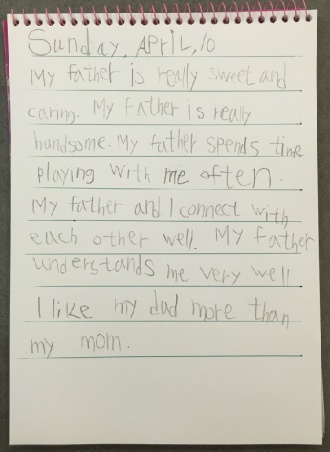 Sunday, APRIL, 10
My father is really sweet and
caring. My Father is really
handsome. My father spends time
playing with me often.
My father and I connect with
each other well. My father
understands me very well
I like my dad more than
my mom.